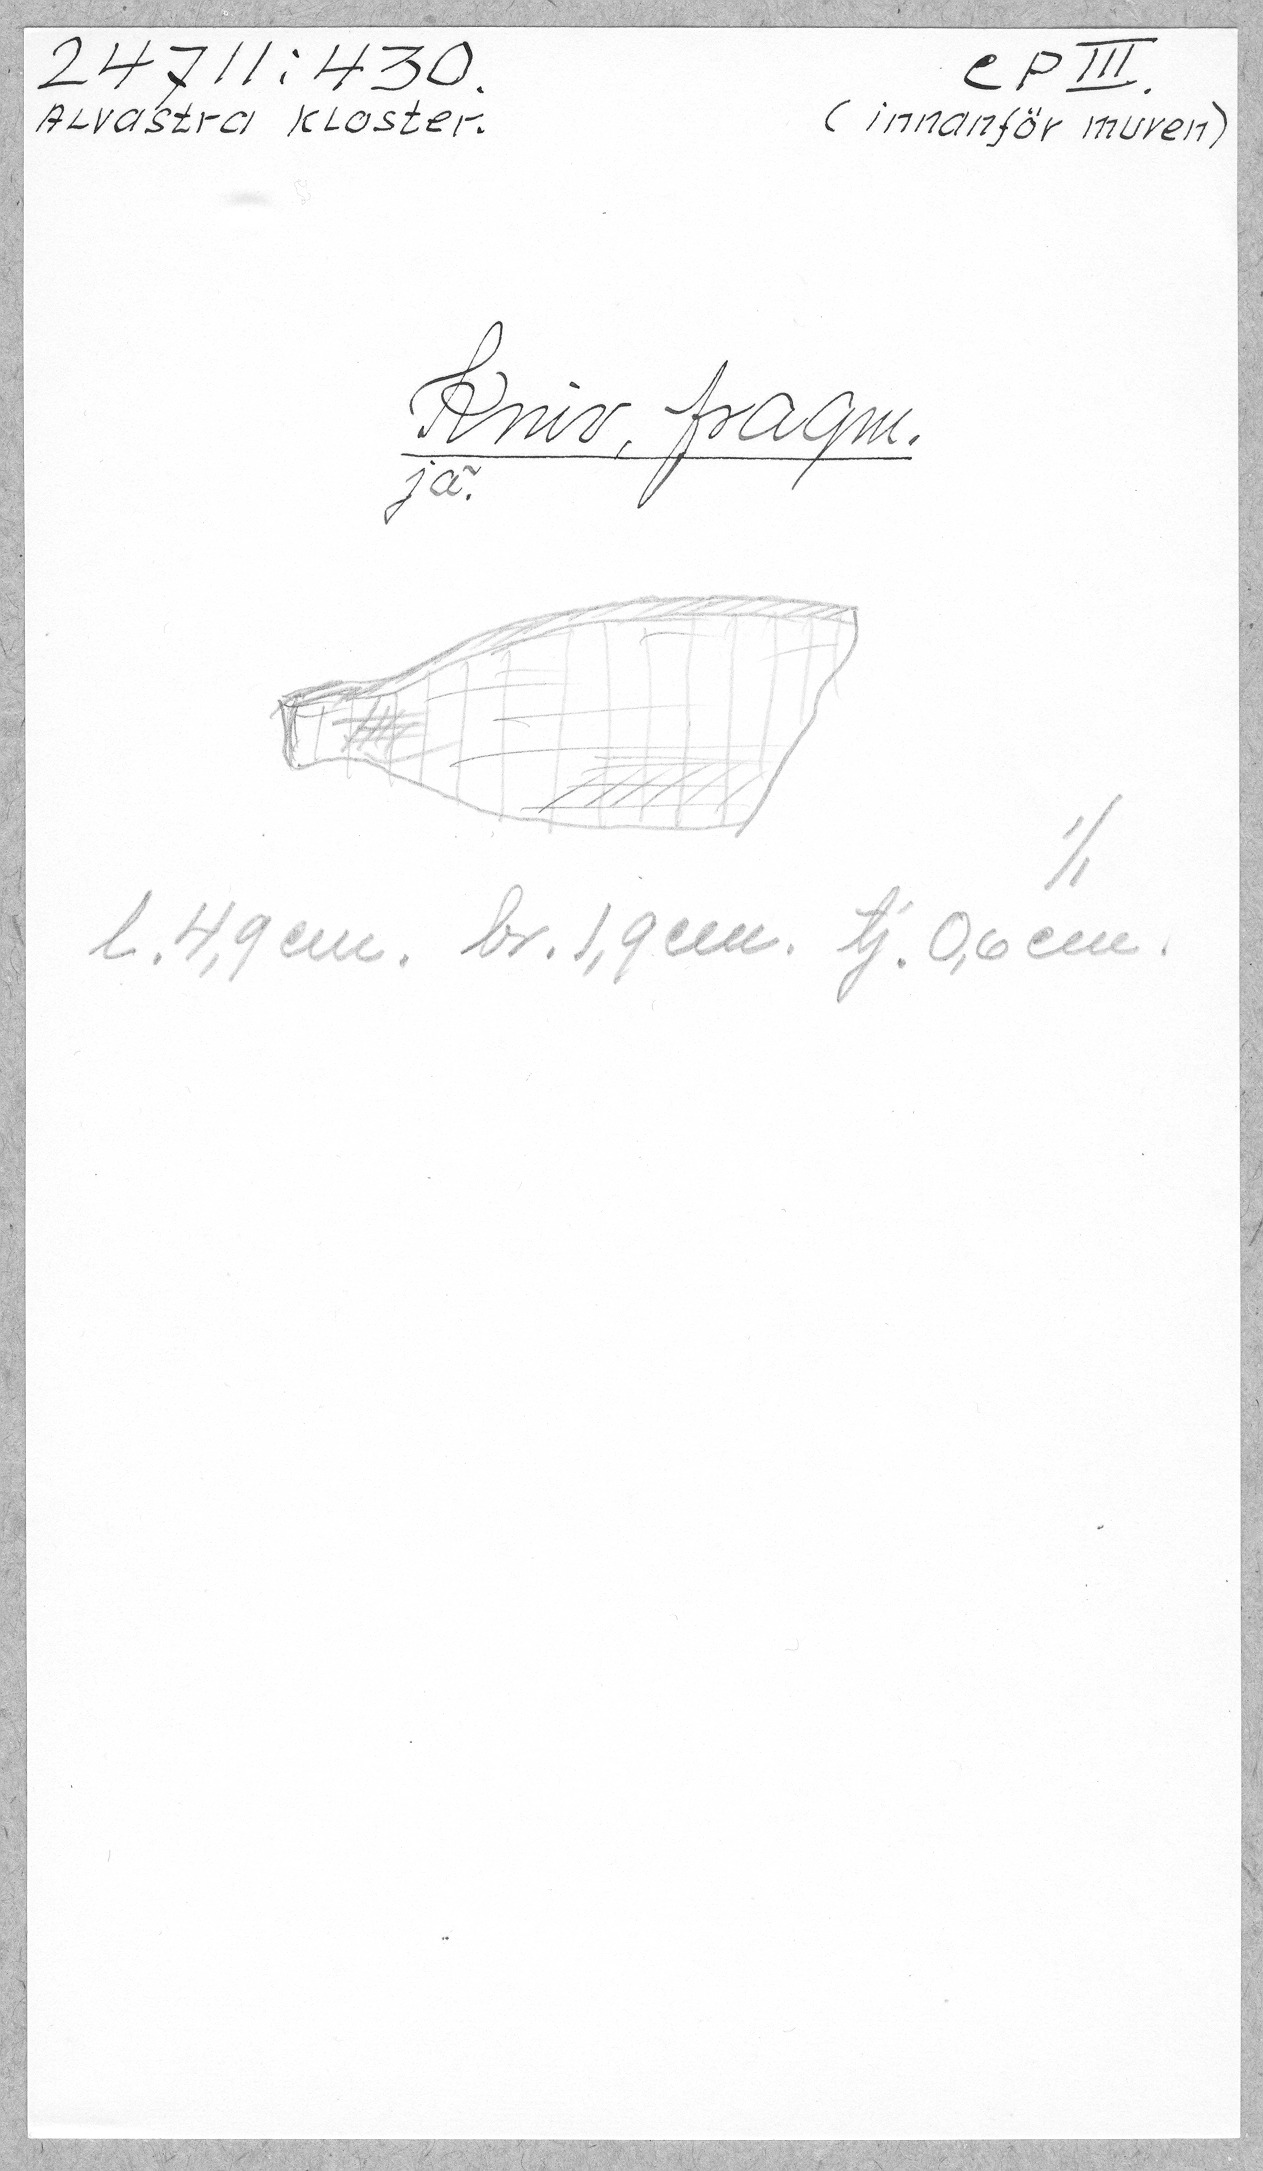 24711:430.
ALVastra KLoster.
CP III.
(innanför muren)
Kniv, fragm.
jä.
1/1
l. 4,9 cm. br. 1,9 cm. tj. 0,6 cm.